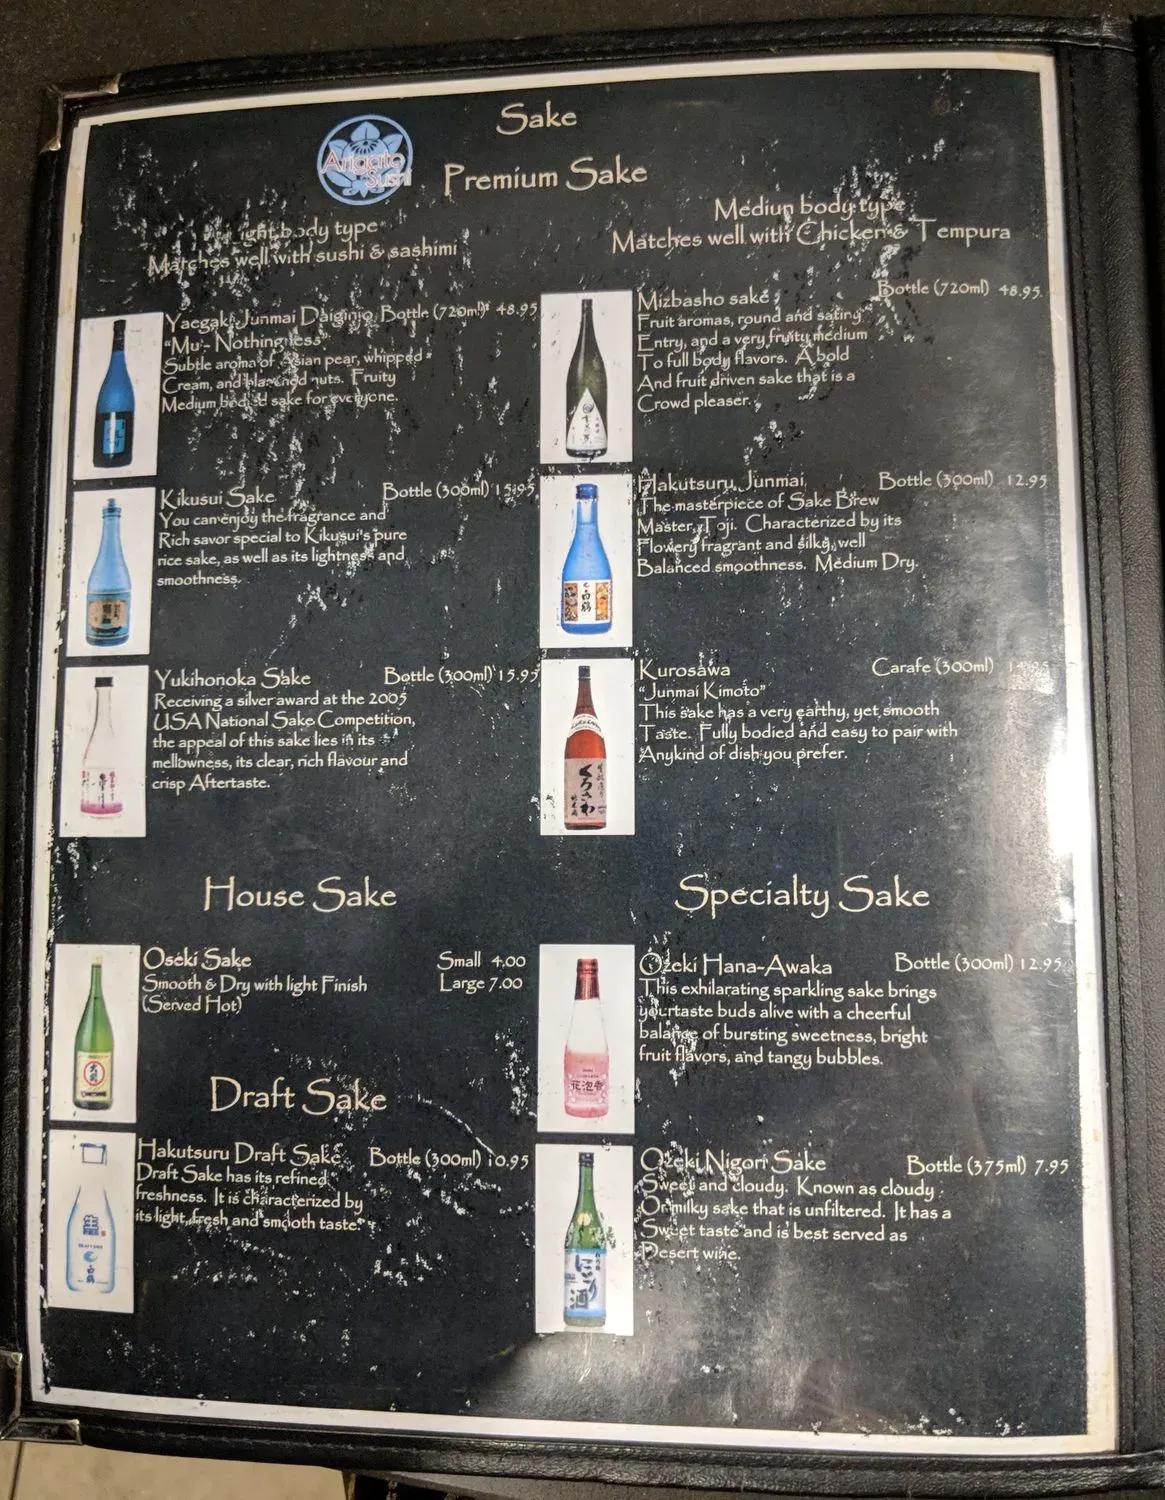 Sake
Arigato
Sushi
Premium Sake
ight body type
Matches well with sushi & sashimi
Yaegaki Junmai Daiginjo Bottle (720ml) 48.95
"Mu - Nothingness"
Subtle aroma of Asian pear, whipped
Cream, and blanched nuts. Fruity
Medium bodied sake for everyone.
Kikusui Sake Bottle (300ml) 15.95
You can enjoy the fragrance and
Rich savor special to Kikusui's pure
rice sake, as well as its lightness and
smoothness.
Yukihonoka Sake Bottle (300ml) 15.95
Receiving a silver award at the 2005
USA National Sake Competition,
the appeal of this sake lies in its
mellowness, its clear, rich flavour and
crisp Aftertaste.
Mediun body type
Matches well with Chicken & Tempura
Mizbasho sake Bottle (720ml) 48.95
Fruit aromas, round and satiny
Entry, and a very fruity medium
To full body flavors. A bold
And fruit driven sake that is a
Crowd pleaser.
Hakutsuru, Junmai Bottle (300ml) 12.95
The masterpiece of Sake Brew
Master, Toji. Characterized by its
Flowery fragrant and silky, well
Balanced smoothness. Medium Dry.
白鶴
Kurosawa Carafe (300ml) 14.95
"Junmai Kimoto"
This sake has a very earthy, yet smooth
Taste. Fully bodied and easy to pair with
Anykind of dish you prefer.
くろさわ
House Sake
Oseki Sake Small 4.00
Smooth & Dry with light Finish Large 7.00
(Served Hot)
Draft Sake
Hakutsuru Draft Sake Bottle (300ml) 10.95
Draft Sake has its refined
freshness. It is characterized by
its light, fresh and smooth taste.
白鶴
Specialty Sake
Ozeki Hana-Awaka Bottle (300ml) 12.95
This exhilarating sparkling sake brings
your taste buds alive with a cheerful
balance of bursting sweetness, bright
fruit flavors, and tangy bubbles.
花泡香
Ozeki Nigori Sake Bottle (375ml) 7.95
Sweet and cloudy. Known as cloudy
Or milky sake that is unfiltered. It has a
Sweet taste and is best served as
Desert wine.
にごり
酒